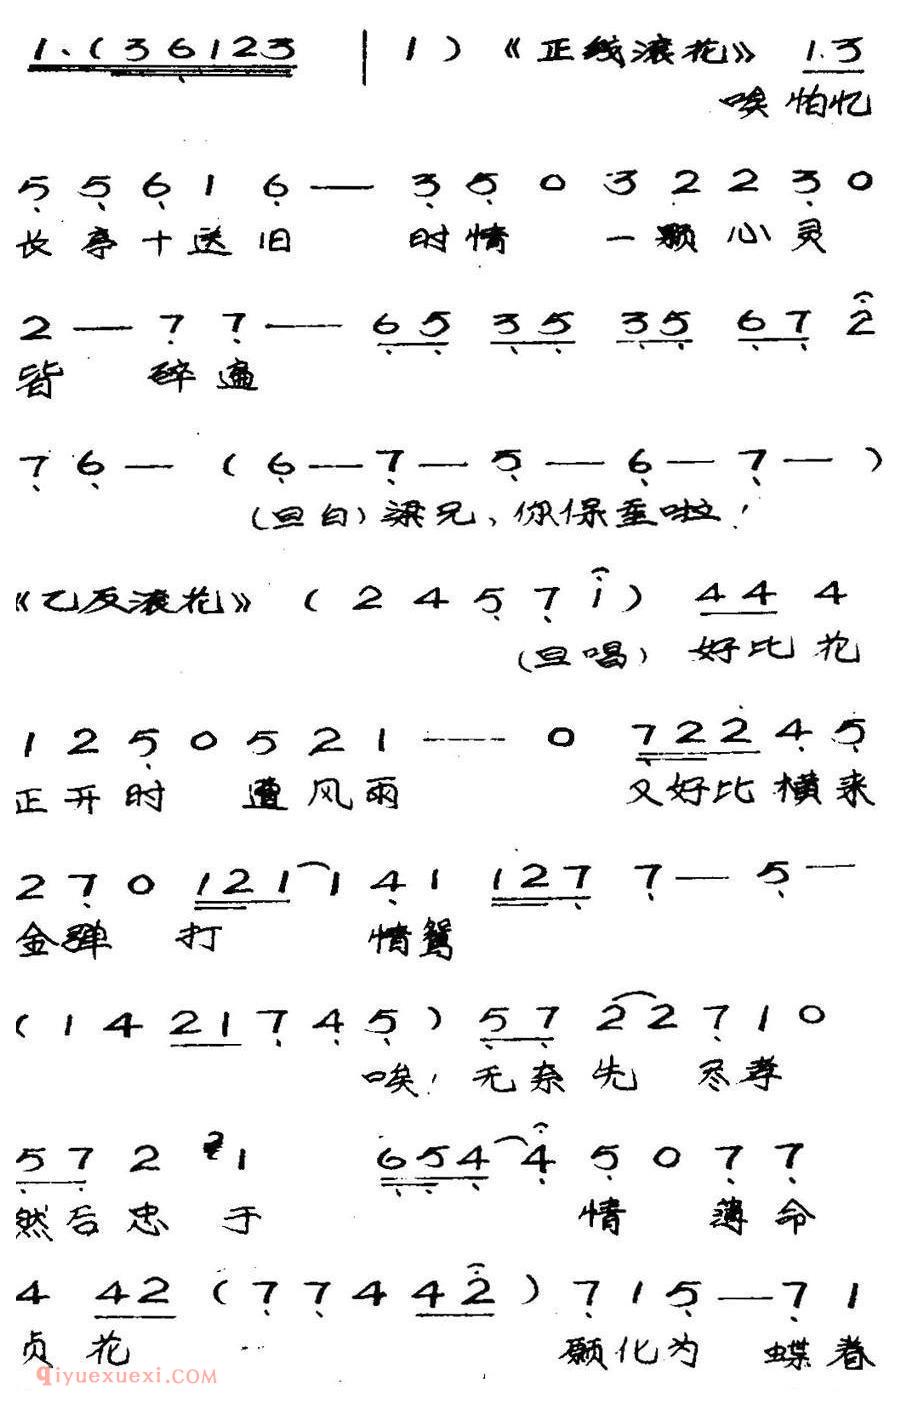 1.(36123 | 1)《正线滚花》 1.3
唉怕忆
5 5 6 1 6 — 3 5 0 3 2 2 3 0
长亭十送旧 时情 一颗心灵
2 — 7 7 — 65 35 35 67 2
皆 碎遍
7 6 — (6 — 7 — 5 — 6 — 7 —)
(旦白)梁兄、你保重啦!
《乙反滚花》(2 4 5 7 i) 44 4
(旦唱) 好比花
1 2 5 0 5 2 1 —— 0 722 4 5
正开时 遭风雨 又好比横来
2 7 0 121 1 4 1 127 7 — 5 —
金弹 打 情鸳
(1 4 21 7 4 5) 57 2 2 7 1 0
唉!无奈先 尽孝
57 2 2 1 654 4 5 0 7 7
然后忠 于 情 薄命
4 42 (7 7 4 42) 7 1 5 — 7 1
贞花 愿化为 蝶眷
qiyuexuexi.com